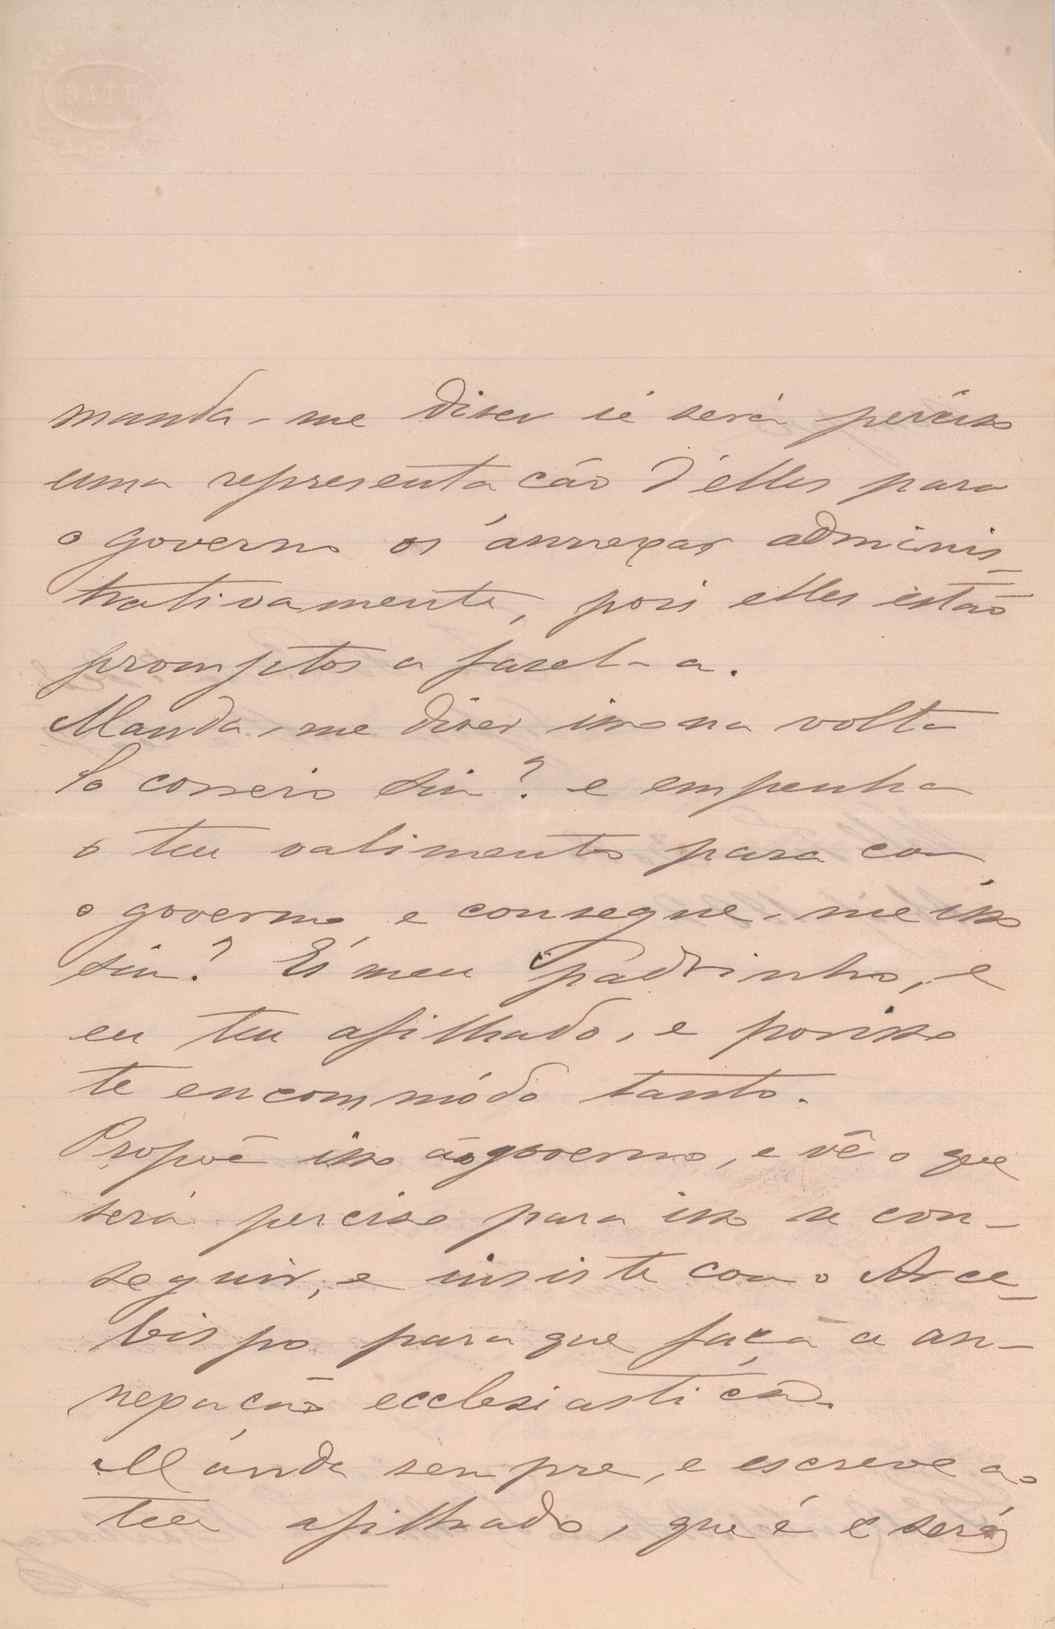 manda-me diser sé será perciso
uma representacão d'elles para
o governo os annexar adminis-
trativamente, pois elles estão
promptos a fasel-a.
Manda-me diser isso na volta
do correio sim? e empenha
o teu valimento para com
o governo e consegue-me isso
sim? És meu Padrinho, e
eu teu afilhado, e porisso
te encommódo tanto.
Propoê isso ao governo, e vê o que
será perciso para isso se con-
seguir, e insiste com o Arce-
bispo para que faça a an-
nexacão ecclesiastica.
Manda sempre, e escreve ao
teu afilhado, que é e será